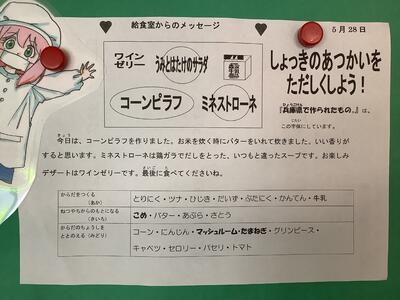 給食室からのメッセージ
5月28日
ワイン
ゼリー
うみとはたけのサラダ
コーンピラフ
ミネストローネ
しょっきのあつかいを
ただしくしよう！
ひょうごけん
『兵庫県で作られたもの』は、
じたい
この字体にしています。
きょう
今日は、コーンピラフを作りました。お米を炊く時にバターをいれて炊きます。いい香りが
すると思います。ミネストローネは鶏ガラでだしをとった、いつもと違ったスープです。お楽しみ
さいご
デザートはワインゼリーです。最後に食べてくださいね。
からだをつくる
（あか）
とりにく・ツナ・ひじき・だいず・ぶたにく・かんてん・牛乳
ねつやちからのもとになる
（きいろ）
こめ・バター・あぶら・さとう
からだのちょうしを
ととのえる（みどり）
コーン・にんじん・マッシュルーム・たまねぎ・グリンピース・
キャベツ・セロリー・パセリ・トマト